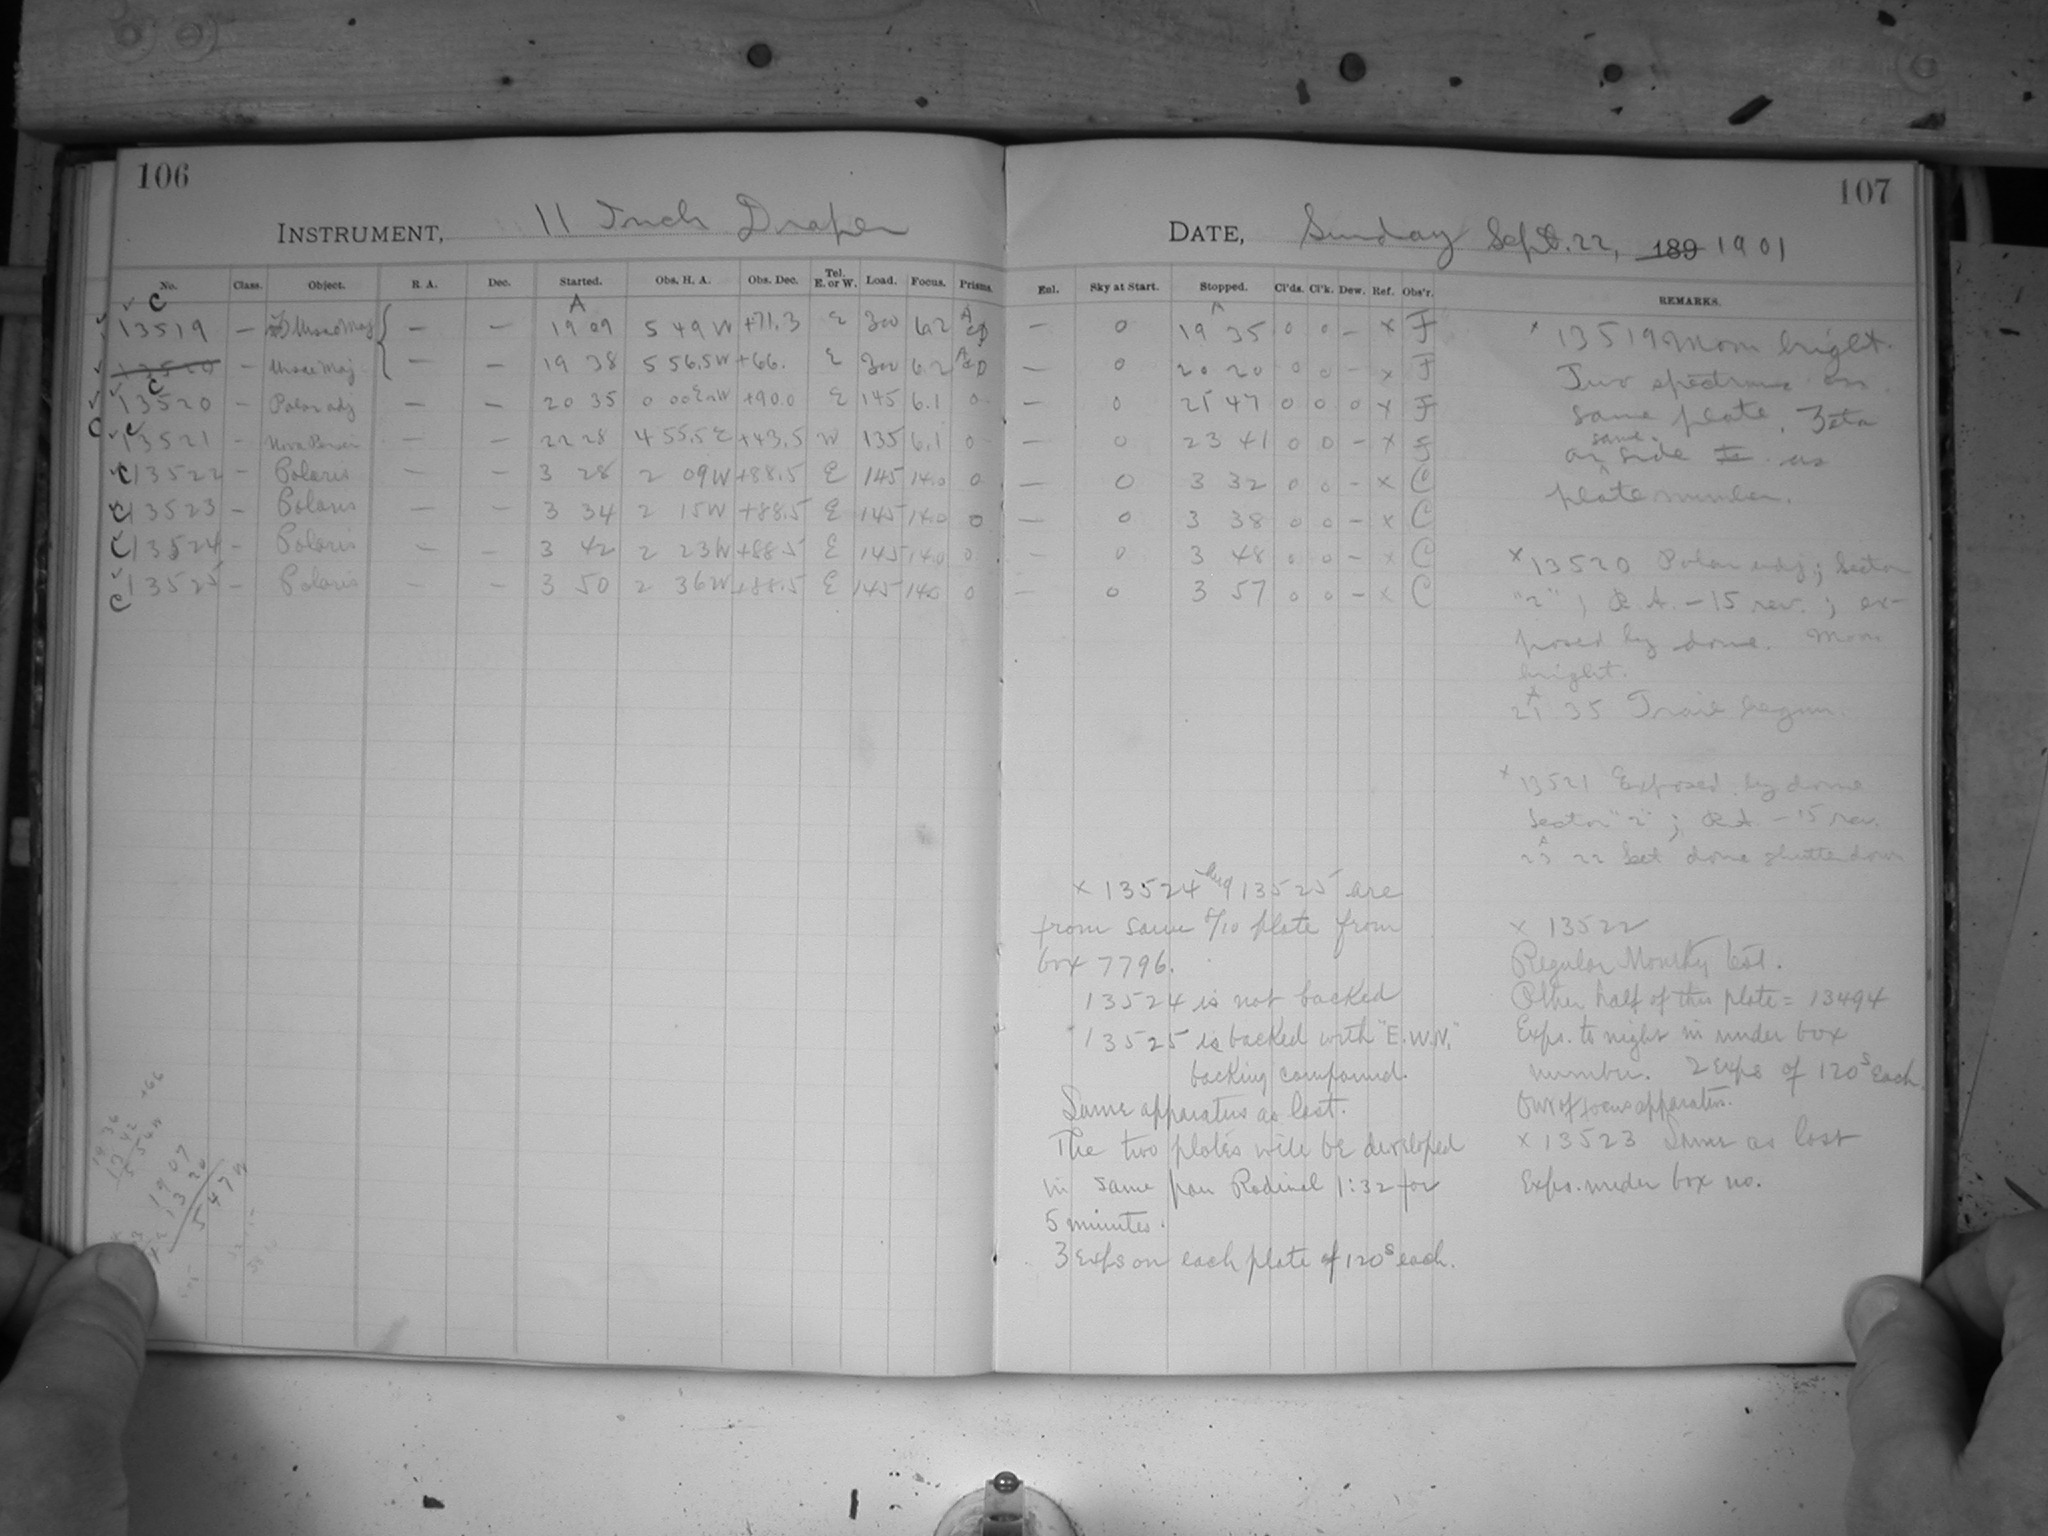 106
INSTRUMENT, 11 Inch Draper
No. Class. Object. R. A. Dec. Started. Obs. H. A. Obs. Dec. Tel. E. or W. Load. Focus. Prisms.
C
A
13519 — Ursae Maj — — 19 09 5 49 W +71.3 E 300 6.2
13520 — Ursae Maj — — 19 38 5 56.5 W +66. E 300 6.2
C 13520 — Polar adj — — 20 35 0 00 +90.0 E 145 6.1 0
C 13521 — Nova Persei — — 22 28 4 55.5 E +43.5 W 135 6.1 0
C 13522 — Polaris — — 3 28 2 09 W +88.5 E 145 14.0 0
C 13523 — Polaris — — 3 34 2 15 W +88.5 E 145 14.0 0
C 13524 — Polaris — — 3 42 2 23 W +88.5 E 145 14.0 0
C 13525 — Polaris — — 3 50 2 36 W +88.5 E 145 14.0 0
19 07
13 20
5 47 W
107
DATE, Sunday Sept. 22, 189 1901
Enl. Sky at Start. Stopped. Cl'ds. Cl'k. Dew. Ref. Obs'r. REMARKS.
A
— 0 19 35 0 0 — x F
— 0 20 20 0 0 — x F
— 0 21 47 0 0 0 x F
— 0 23 41 0 0 — x F
— 0 3 32 0 0 — x C
— 0 3 38 0 0 — x C
— 0 3 48 0 0 — x C
— 0 3 57 0 0 — x C
x 13519 Moon bright.
Two spectrums on
same plate. Zeta
on same side as
plate number.
x 13520 Polar adj; Sector
"2"; R.A. — 15 rev.; ex-
posed by dome. Moon
bright.
21 35 Trail begun.
x 13521 Exposed by dome
Sector "2"; R.A. — 15 rev.
23 22 Set dome shutter down
x 13522
Regular Monthly test.
Other half of this plate = 13494
Expo. to night is under box
number. 2 Exps of 120s each.
Out of focus apparatus.
x 13523 Same as last
Expo. under box no.
x 13524 13525 are
from same 8/10 plate from
box 7796.
13524 is not backed
13525 is backed with "E.W.N."
backing compound.
Same apparatus as last.
The two plates will be developed
in same pan Rodinal 1:32 for
5 minutes.
3 Exps on each plate of 120s each.